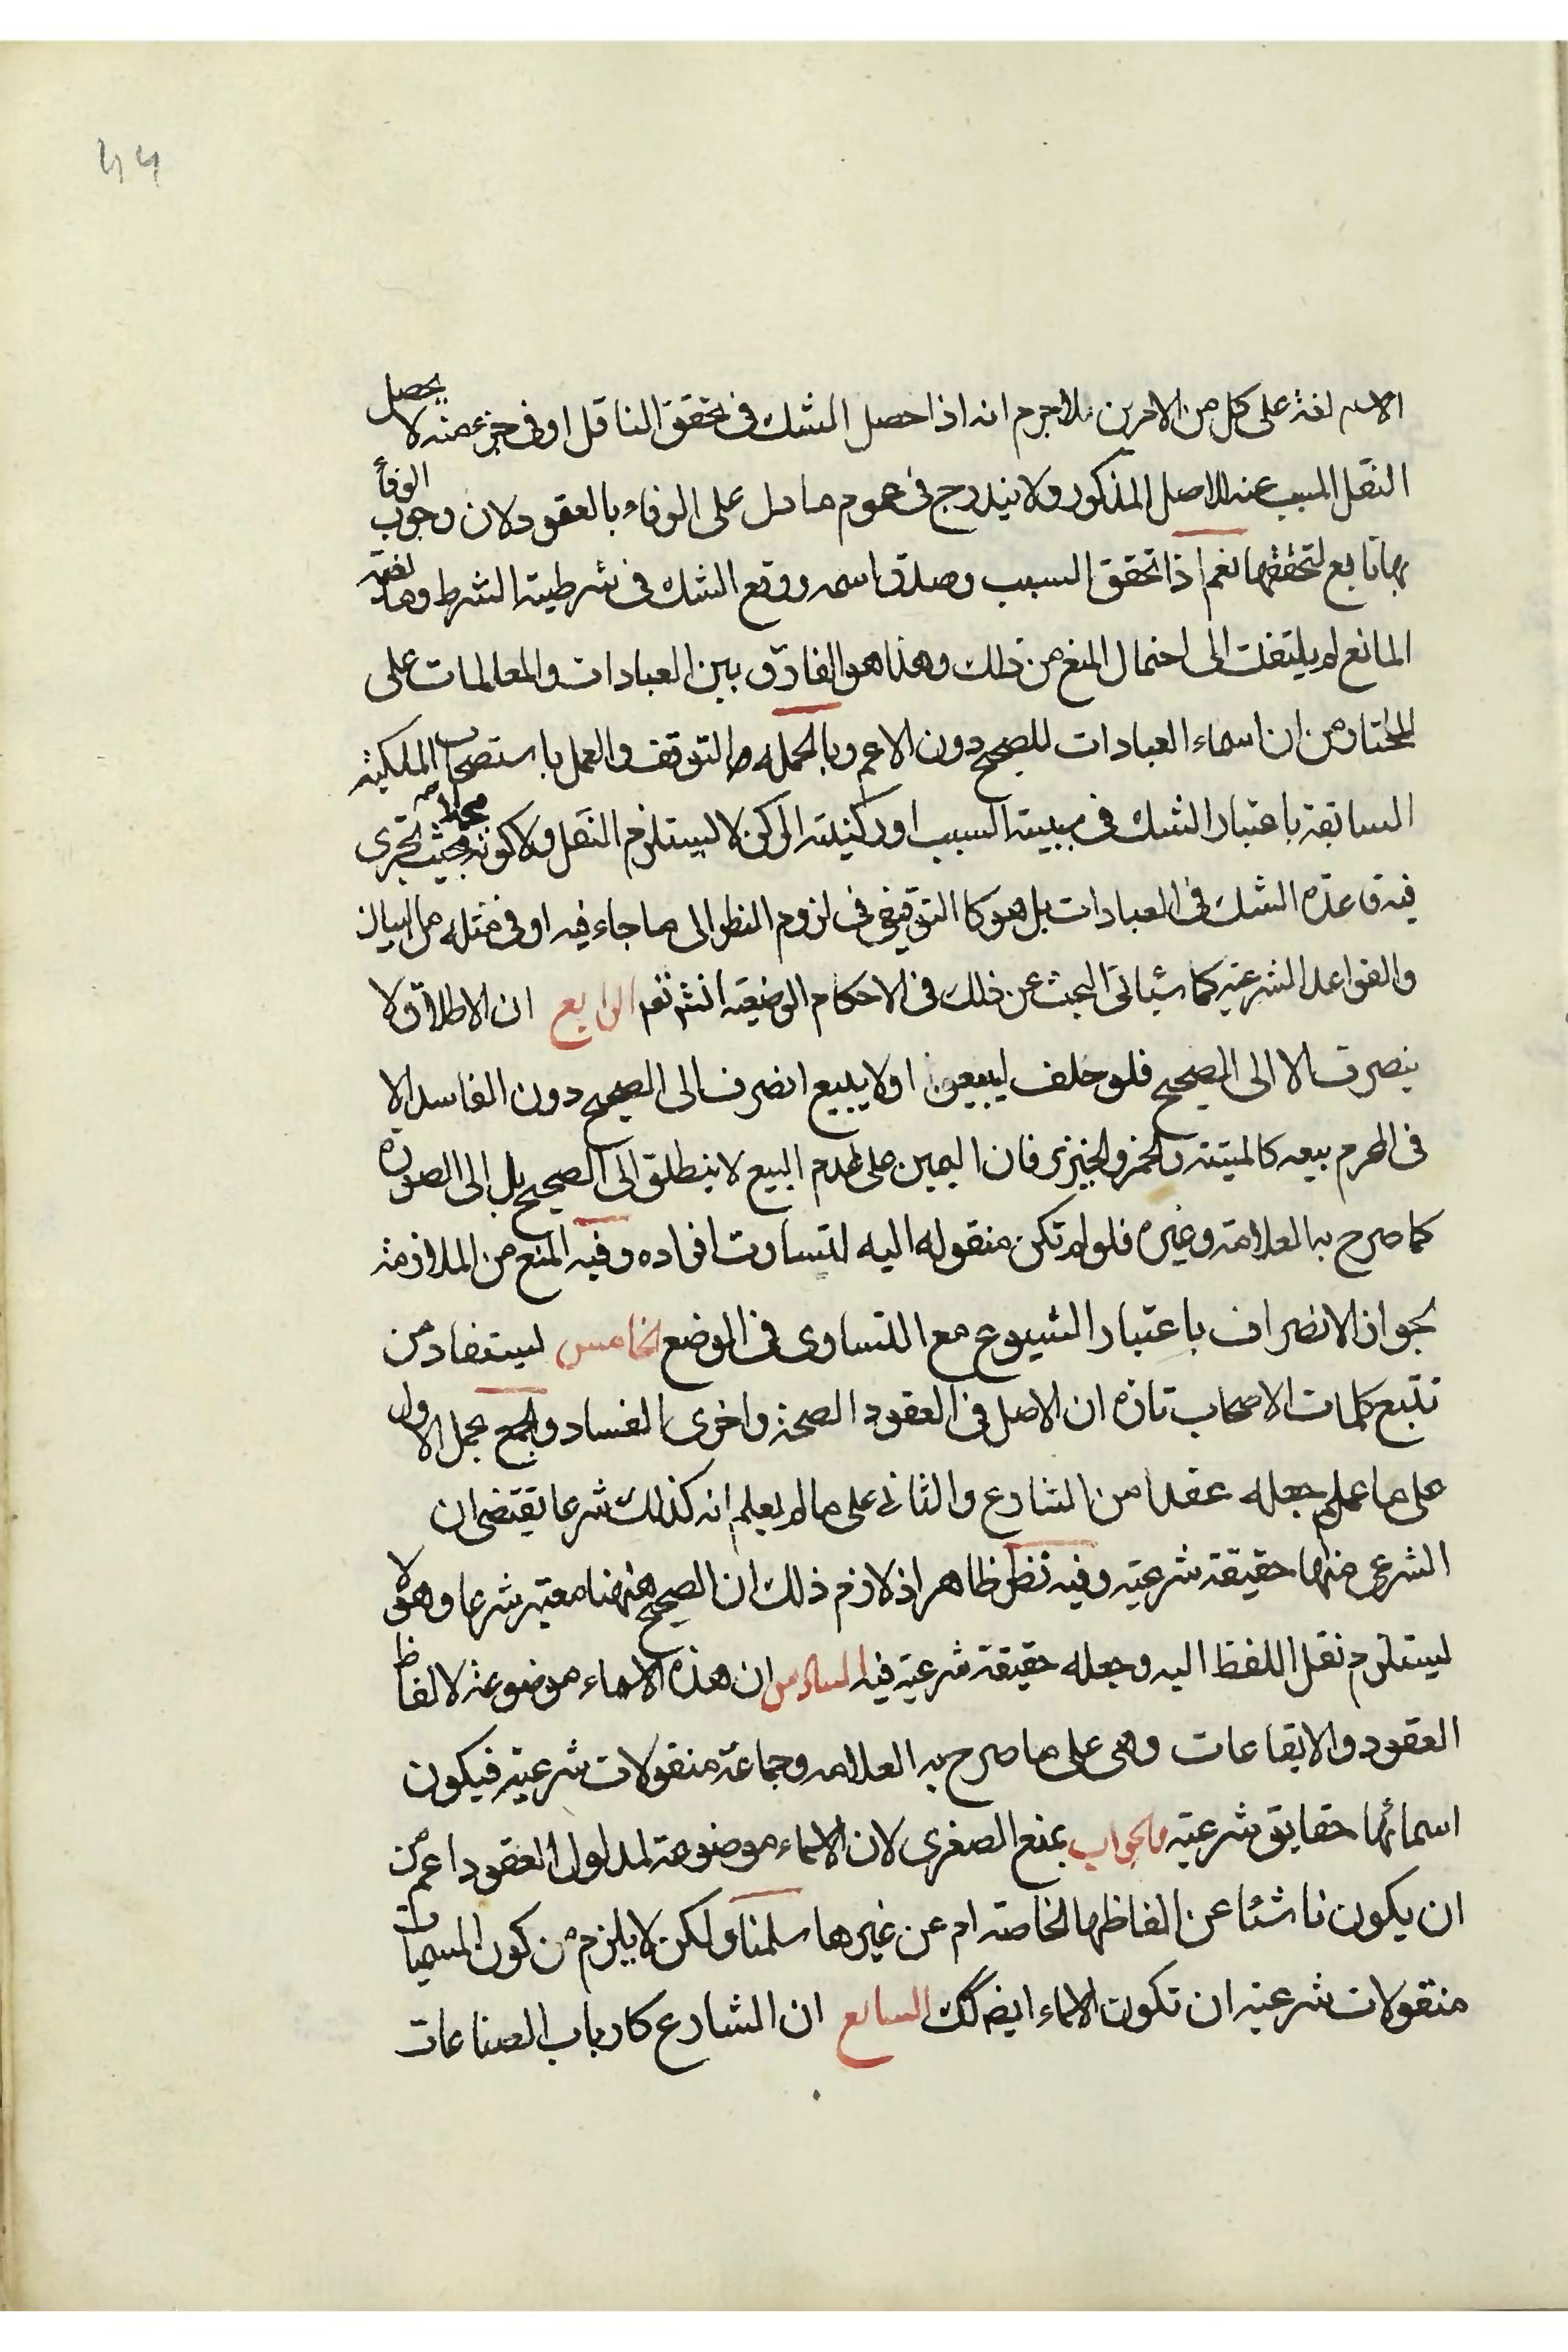 44
الاسم لغة على كل من الامرين فلا جرم انه اذا حصل الشك فى تحقق الناقل او فى جزء منه لا يحصل
النقل المسبب عنه للاصل المذكور ولا يندرج فى عموم ما دل على الوفاء بالعقود لان وجوب الوفأ
بها تابع لتحققها نعم اذا تحقق السبب وصدق اسمه ووقع الشك فى شرطية الشرط ومانعية
المانع لم يلتفت الى احتمال المنع من ذلك وهذا هو الفارق بين العبادات والمعاملات على
المختار من ان اسماء العبادات للصحيح دون الاعم وبالجمله التوقف والعمل باستصحاب الملكية
السابقة باعتبار الشك فى سببية السبب او ركنية الركن لا يستلزم النقل ولا كونه مجملا بحيث تجرى
فيه قاعدة الشك فى العبادات بل هو كالتوقيفى فى لزوم النظر الى ما جاء فيه او فى مثله من البيان
والقواعد الشرعية كما سيأتى البحث عن ذلك فى الاحكام الوضعية انش تعم الرابع ان الاطلاق لا
ينصرف الا الى الصحيح فلو حلف ليبيعن او لا يبيع انصرف الى الصحيح دون الفاسد الا
فى المحرم بيعه كالميتة والخمر والخنزير فان اليمين على عدم البيع لا ينطلق الى الصحيح بل الى الصورة
كما صرح به العلامة وغيره فلو لم تكن منقوله اليه لتساوت افراده وفيه المنع من الملازمة
لجواز الانصراف باعتبار الشيوع مع التساوى فى الوضع الخامس يستفاد من
تتبع كلمات الاصحاب تارة ان الاصل فى العقود الصحة واخرى الفساد والجمع بحمل الاول
على ما علم جعله عقدا من الشارع والثانى على ما لم يعلم انه كذلك شرعا يقتضى ان
الشرعى منها حقيقة شرعية وفيه نظر ظاهر اذ لازم ذلك ان الصحيح منهما معتبر شرعا وهو لا
يستلزم نقل اللفظ اليه وجعله حقيقة شرعية فيه السادس ان هذه الاسماء موضوعة لالفاظ
العقود والايقاعات وهى على ما صرح به العلامه وجماعة منقولات شرعية فيكون
اسمائها حقايق شرعية والجواب بمنع الصغرى لان الاسماء موضوعة لمدلول العقود اعم من
ان يكون ناشئا عن الفاظها الخاصة ام عن غيرها سلمنا ولكن لا يلزم من كون المسميات
منقولات شرعية ان تكون الاسماء ايضا كك السابع ان الشارع كارباب الصناعات